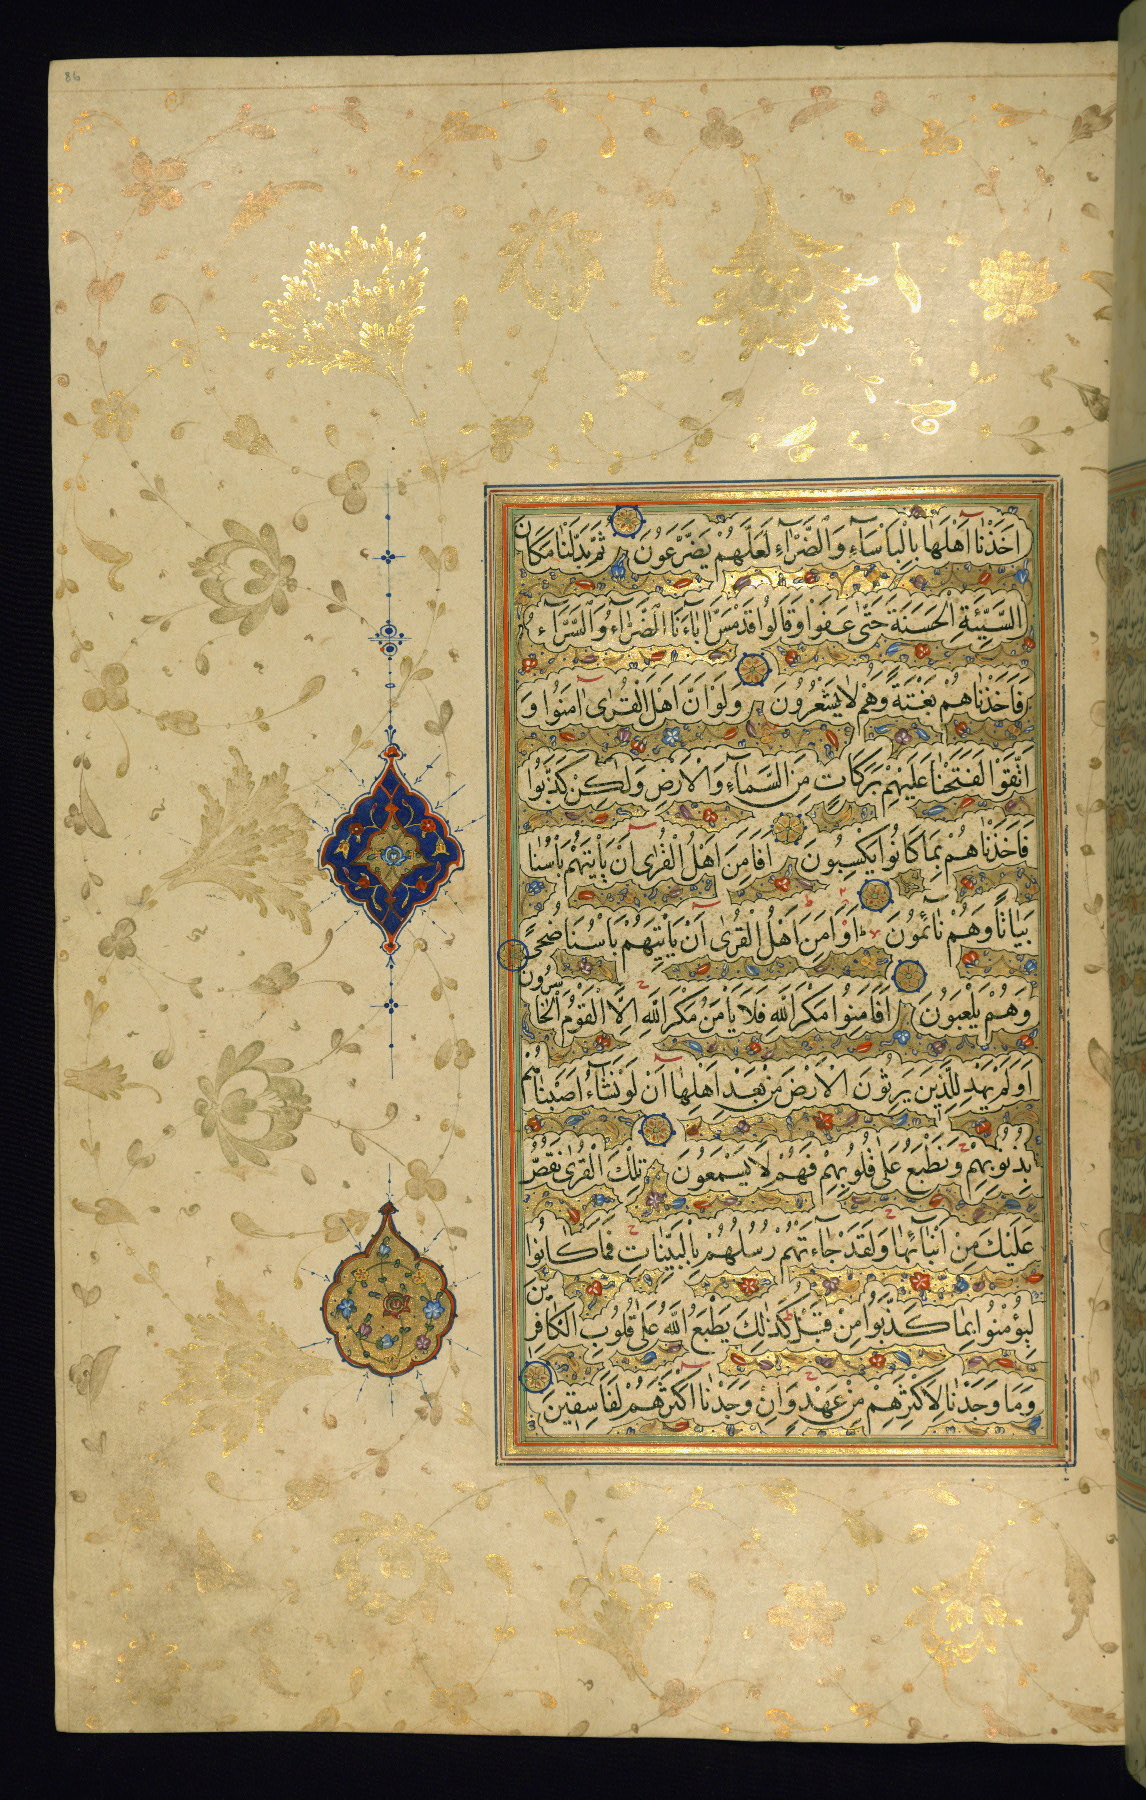 86
اَخَذْنَا اَهْلَهَا بِالْبَاْسَاءِ وَالضَّرَّاءِ لَعَلَّهُمْ يَضَّرَّعُونَ ثُمَّ بَدَّلْنَا مَكَانَ
السَّيِّئَةِ الْحَسَنَةَ حَتّٰى عَفَوْا وَقَالُوا قَدْ مَسَّ اٰبَاءَنَا الضَّرَّاءُ وَالسَّرَّاءُ
فَاَخَذْنَاهُمْ بَغْتَةً وَهُمْ لَا يَشْعُرُونَ وَلَوْ اَنَّ اَهْلَ الْقُرٰى اٰمَنُوا وَ
اتَّقَوْا لَفَتَحْنَا عَلَيْهِمْ بَرَكَاتٍ مِنَ السَّمَاءِ وَالْاَرْضِ وَلٰكِنْ كَذَّبُوا
فَاَخَذْنَاهُمْ بِمَا كَانُوا يَكْسِبُونَ اَفَاَمِنَ اَهْلُ الْقُرٰى اَنْ يَاْتِيَهُمْ بَاْسُنَا
بَيَاتًا وَهُمْ نَائِمُونَ اَوَاَمِنَ اَهْلُ الْقُرٰى اَنْ يَاْتِيَهُمْ بَاْسُنَا ضُحًى
وَهُمْ يَلْعَبُونَ اَفَاَمِنُوا مَكْرَ اللّٰهِ فَلَا يَاْمَنُ مَكْرَ اللّٰهِ اِلَّا الْقَوْمُ الْخَاسِرُونَ
اَوَلَمْ يَهْدِ لِلَّذِينَ يَرِثُونَ الْاَرْضَ مِنْ بَعْدِ اَهْلِهَا اَنْ لَوْ نَشَاءُ اَصَبْنَاهُمْ
بِذُنُوبِهِمْ وَنَطْبَعُ عَلٰى قُلُوبِهِمْ فَهُمْ لَا يَسْمَعُونَ تِلْكَ الْقُرٰى نَقُصُّ
عَلَيْكَ مِنْ اَنْبَائِهَا وَلَقَدْ جَاءَتْهُمْ رُسُلُهُمْ بِالْبَيِّنَاتِ فَمَا كَانُوا
لِيُؤْمِنُوا بِمَا كَذَّبُوا مِنْ قَبْلُ كَذٰلِكَ يَطْبَعُ اللّٰهُ عَلٰى قُلُوبِ الْكَافِرِينَ
وَمَا وَجَدْنَا لِاَكْثَرِهِمْ مِنْ عَهْدٍ وَاِنْ وَجَدْنَا اَكْثَرَهُمْ لَفَاسِقِينَ